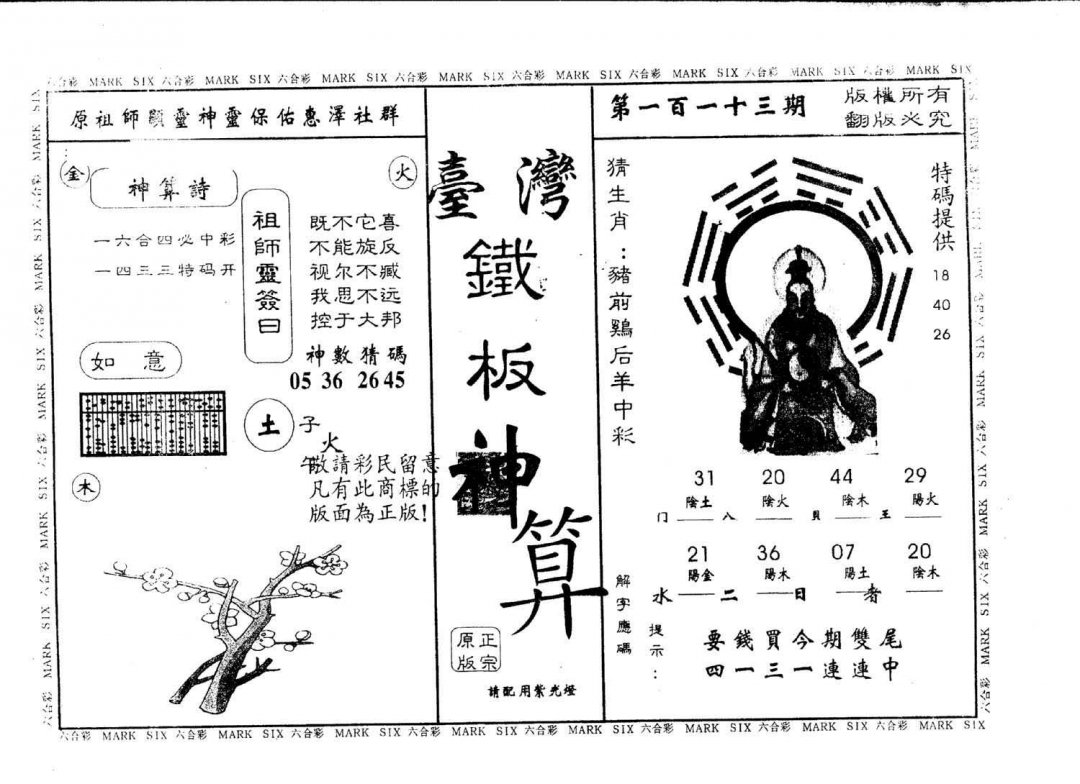 六合彩 MARK SIX 六合彩 MARK SIX 六合彩 MARK SIX 六合彩 MARK SIX 六合彩 MARK SIX 六合彩 MARK SIX 六合彩 MARK SIX 六合彩 MARK SIX
原祖師顯靈神靈保佑惠澤社群
金
火
神算詩
一六合四必中彩
一四三三特码开
祖師靈簽曰
既不它喜
不能旋反
视尔不臧
我思不远
控于大邦
神數猜碼
05 36 26 45
如意
土
子
火
午
敬請彩民留意
凡有此商標的
版面為正版!
木
臺灣
鐵
板
神
算
正宗
原版
請配用紫光燈
第一百一十三期
版權所有
翻版必究
猜生肖:豬前鷄后羊中彩
特碼提供
18
40
26
31 20 44 29
陰土 陰火 陰木 陽火
门 八 貝 王
21 36 07 20
陽金 陽木 陽土 陰木
水 二 日 者
解字應碼
提示:
要錢買今期雙尾
四一三一連連中
六合彩 MARK SIX 六合彩 MARK SIX 六合彩 MARK SIX 六合彩 MARK SIX 六合彩 MARK SIX 六合彩 MARK SIX 六合彩 MARK SIX 六合彩 MARK SIX